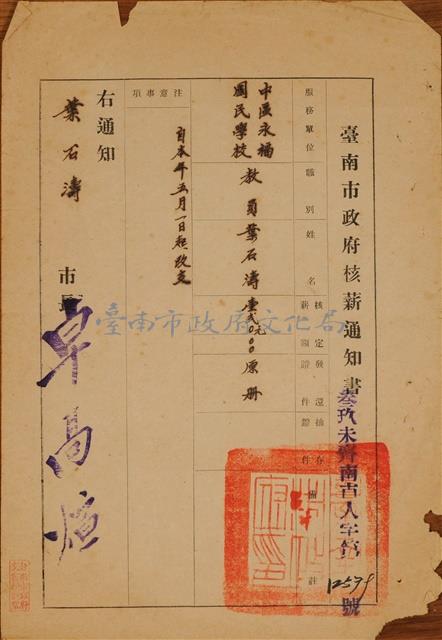 臺南市政府核薪通知書
叁玖未齊南吉人字第
號
服務單位
職別
姓名
核定薪額
發還證件
抽存證件
備註
中區永福
國民學校
教員
葉石濤
原册
注意事項
自本年五月一日起改支
右通知
葉石濤
市長
卓高煊
臺南市政府文化局